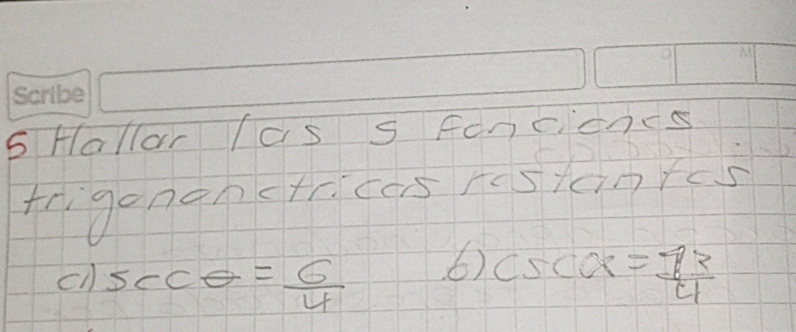 Scribe
5 Hallar las 5 funciones
trigonometricas restantes
a) sec θ = 6/4 b) csc α = 13/4